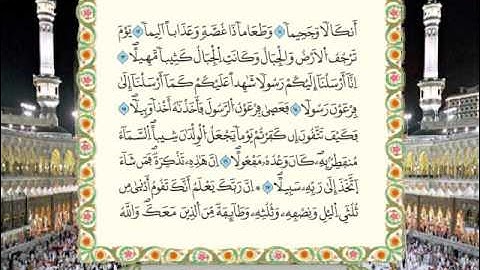 أَنكَالًا وَجَحِيمًا ۝١٢ وَطَعَامًا ذَا غُصَّةٍ وَعَذَابًا أَلِيمًا ۝١٣ يَوْمَ
تَرْجُفُ الْأَرْضُ وَالْجِبَالُ وَكَانَتِ الْجِبَالُ كَثِيبًا مَّهِيلًا ۝١٤
إِنَّا أَرْسَلْنَا إِلَيْكُمْ رَسُولًا شَاهِدًا عَلَيْكُمْ كَمَا أَرْسَلْنَا إِلَىٰ
فِرْعَوْنَ رَسُولًا ۝١٥ فَعَصَىٰ فِرْعَوْنُ الرَّسُولَ فَأَخَذْنَاهُ أَخْذًا وَبِيلًا ۝١٦
فَكَيْفَ تَتَّقُونَ إِن كَفَرْتُمْ يَوْمًا يَجْعَلُ الْوِلْدَانَ شِيبًا ۝١٧ السَّمَاءُ
مُنفَطِرٌ بِهِ كَانَ وَعْدُهُ مَفْعُولًا ۝١٨ إِنَّ هَٰذِهِ تَذْكِرَةٌ فَمَن شَاءَ
اتَّخَذَ إِلَىٰ رَبِّهِ سَبِيلًا ۝١٩ إِنَّ رَبَّكَ يَعْلَمُ أَنَّكَ تَقُومُ أَدْنَىٰ مِن
ثُلُثَيِ اللَّيْلِ وَنِصْفَهُ وَثُلُثَهُ وَطَائِفَةٌ مِّنَ الَّذِينَ مَعَكَ وَاللَّهُ